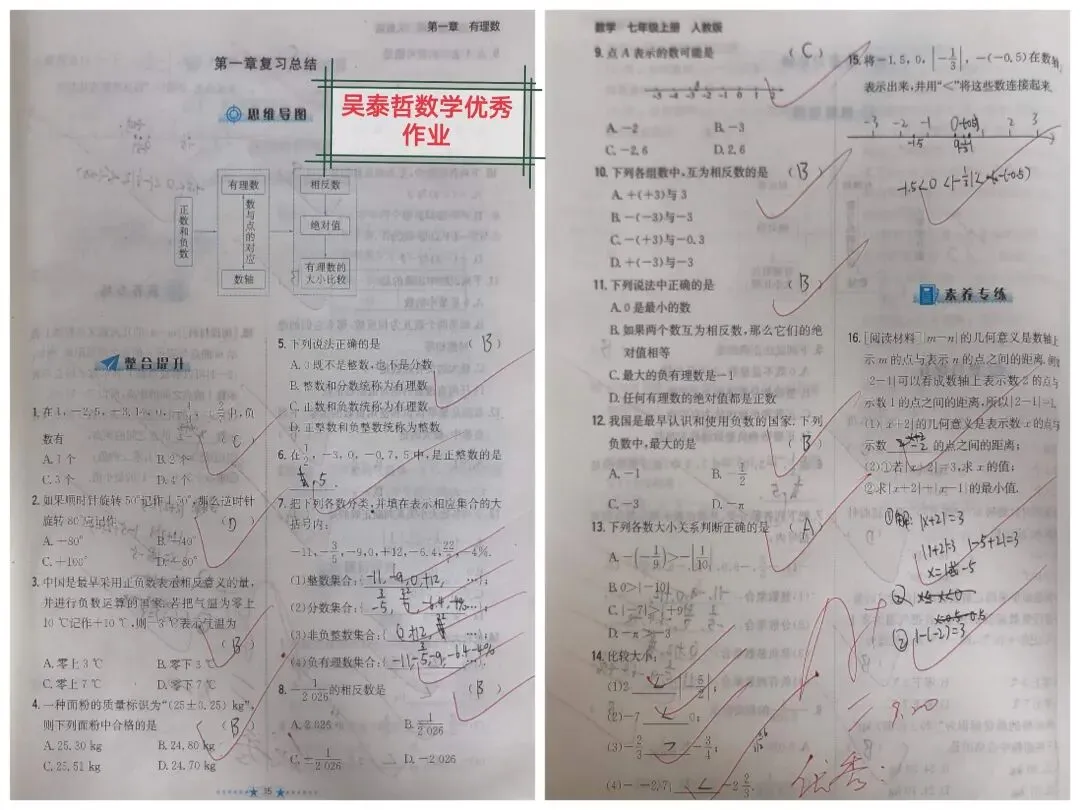 第一章 有理数
第一章复习总结
思维导图
吴泰哲数学优秀
作业
正数和负数
有理数
数与点的对应
数轴
相反数
绝对值
有理数的
大小比较
整合提升
数有
A.1个 B.2个
C.3个 D.4个
C
2.如果顺时针旋转50°记作+50°,那么逆时针
旋转80°应记作 (D)
A.-80° B.-40°
C.+100° D.+80°
3.中国是最早采用正负数表示相反意义的量,
并进行负数运算的国家.若把气温为零上
10℃记作+10℃,则-3℃表示气温为
(B)
A.零上3℃ B.零下3℃
C.零上7℃ D.零下7℃
4.一种面粉的质量标识为“(25±0.25) kg”,
则下列面粉中合格的是 (B)
A.25.30 kg B.24.80 kg
C.25.51 kg D.24.70 kg
5.下列说法正确的是 (B)
A.0既不是整数,也不是分数
B.整数和分数统称为有理数
C.正数和负数统称为有理数
D.正整数和负整数统称为整数
5.
7.把下列各数分类,并填在表示相应集合的大
括号内:
-11,-3/5,-9,0,+12,-6.4,22/7,-4%.
(1)整数集合:{-11,-9,0,+12, …};
(2)分数集合:{
(3)非负整数集合:{0,+12, …};
(4)负有理数集合:{-11,-3/5,-9,-6.4,-4% …}.
8.-1/2 026的相反数是 (B)
A.2 026 B.1/2 026
C.-1/2 026 D.-2 026
35
数学 七年级上册 人教版
9.点A表示的数可能是 (C)
-5 -4 -3 -2 -1 0 1 2
A.-2 B.-3
C.-2.6 D.2.6
10.下列各组数中,互为相反数的是 (B)
A.+(+3)与3
B.-(-3)与-3
C.-(+3)与-0.3
D.+(-3)与-3
11.下列说法中正确的是 (B)
A.0是最小的数
B.如果两个数互为相反数,那么它们的绝
对值相等
C.最大的负有理数是-1
D.任何有理数的绝对值都是正数
12.我国是最早认识和使用负数的国家.下列
负数中,最大的是 (B)
A.-1 B.-1/2
C.-3 D.-π
13.下列各数大小关系判断正确的是 (A)
A.-(-1/9)>-|1/10|
D.-π>-3
14.比较大小:
(2)-7 < 0;
(3)-2/3 > -3/4;
15.将-1.5,0,|-1/3|,-(-0.5)在数轴
表示出来,并用“<”将这些数连接起来.
-3 -2 -1 0 2 3
-1.5
-1.5<0<|-1/3|<-(-0.5)
素养专练
16.[阅读材料]|m-n|的几何意义是数轴上
示m的点与表示n的点之间的距离.例如
2-1|可以看成数轴上表示数2的点与
示数1的点之间的距离,所以|2-1|=1.
(1)|x+2|的几何意义是表示数x的点与
示数 -2 的点之间的距离;
(2)①若|x+2|=3,求x的值;
②求|x+2|+|x-1|的最小值.
①解:|x+2|=3
|1+2|=3 |-5+2|=3
②|1-(-2)|=3
9.20
优秀